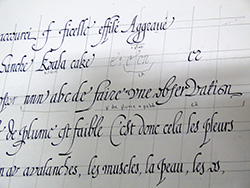 accourci f ficelle effilé Aggravé
Hanche Koala cake e e en cz
nnn abcde faire une observation
de plume est faible C'est donc cela les pleurs
avalanches, les muscles, la peau, les os,